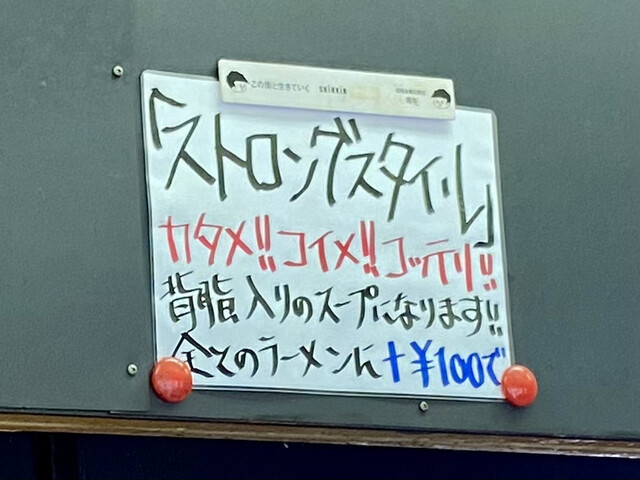 この街と生きていく
「ストロングスタイル」
カタメ!! コイメ!! コッテリ!!
背脂入りのスープになります!!
全てのラーメンに +¥100で